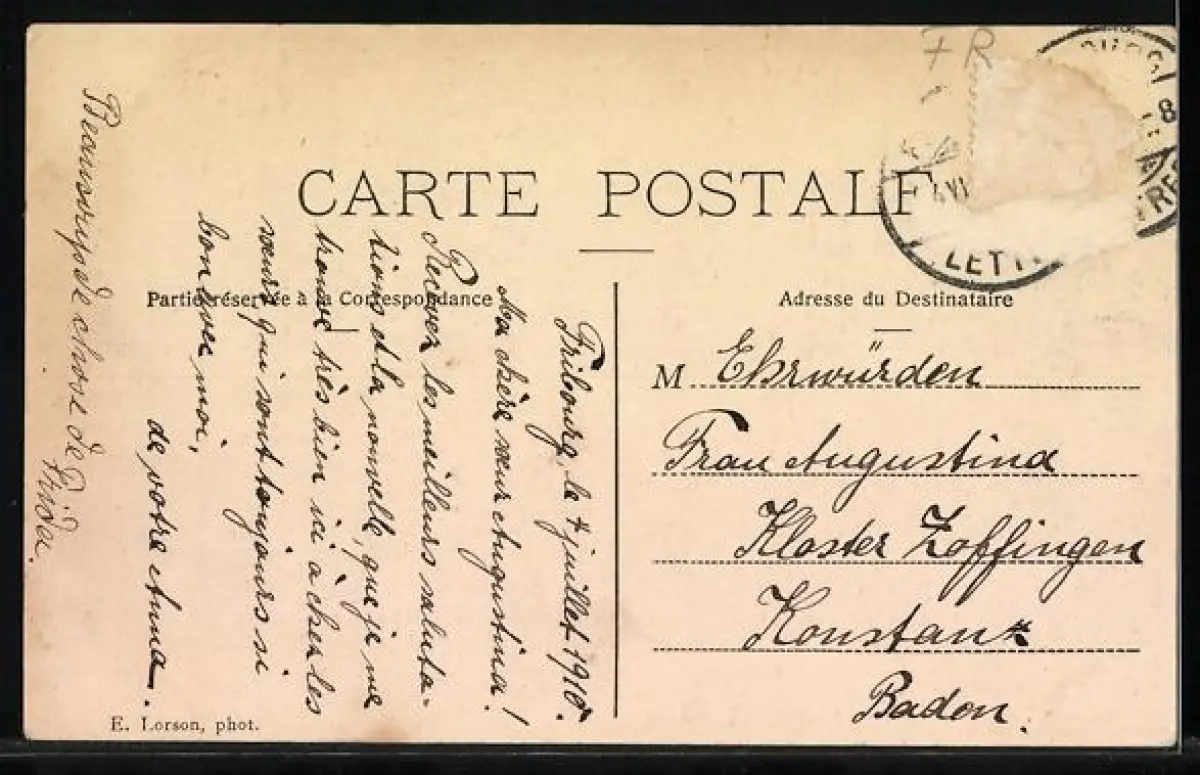 CARTE POSTALE
Partie réservée à la Correspondance
Adresse du Destinataire
Fribourg, le 4 juillet 1910.
Ma chère sœur Augustina!
Recever les meilleurs saluta-
tions et la nouvelle, que je me
trouve très bien ici à chez les
sœurs qui sont toujours si
bon avec moi,
de votre Anna.
de chose de
Frida.
M Ehrwürden
Frau Augustina
Kloster Zoffingen
Konstanz
Baden.
E. Lorson, phot.
FR
8
LETT